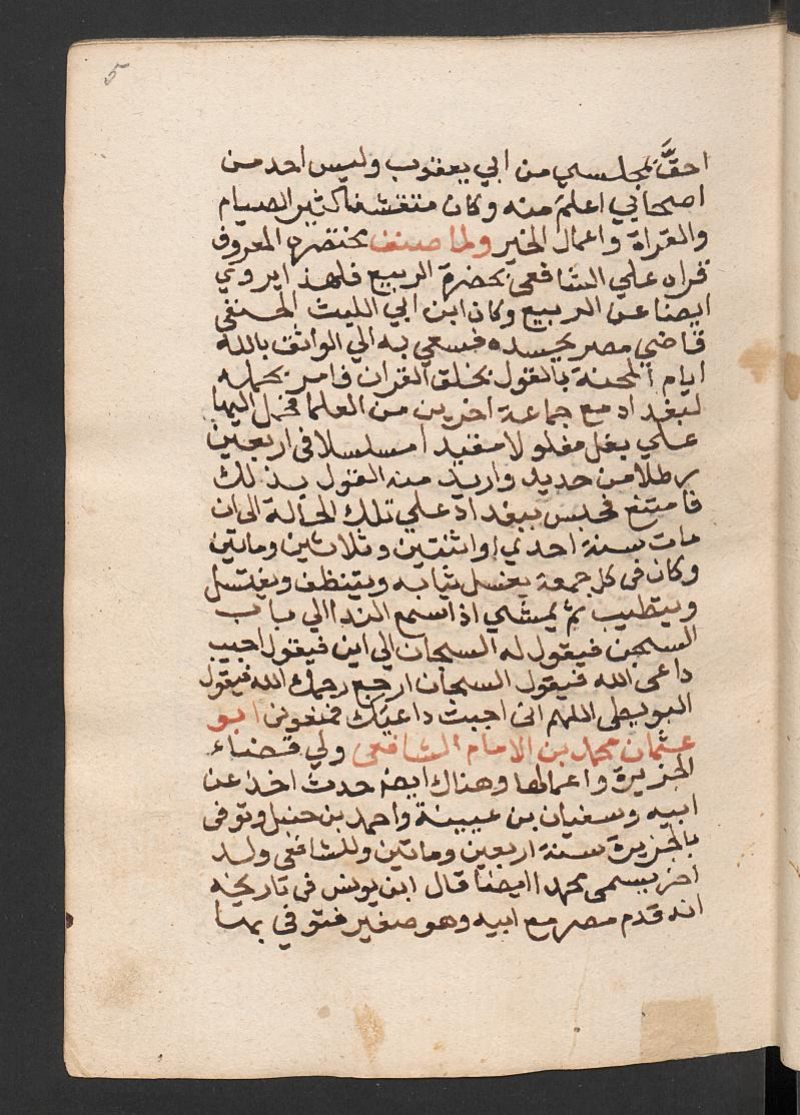 5
احقَّ بمجلسي من ابي يعقوب وليس احد من
اصحابي اعلم منه وكان متقشفا كثير الصيام
والقراة واعمال الخير ولما صنف مختصره المعروف
قراه علي الشافعى بحضرة الربيع فلهذا يروي
ايضا عن الربيع وكان ابن ابي الليث الحنفى
قاضي مصر يحسده فسعي به الي الواثق بالله
ايام المحنة بالقول بخلق القران فامر بحمله
لبغداد مع جماعة اخرين من العلما فحمل اليها
علي بغل مغلولا مقيدا مسلسلا فى اربعين
رطلا من حديد واريد منه القول بذلك
فامتنع فحبس ببغداد علي تلك الحالة الى ان
مات سنة احدي او اثنتين وثلاثين وماتين
وكان فى كل جمعة يغسل ثيابه ويتنظف ويغتسل
ويتطيب ثم يمشي اذا سمع الندا الي باب
السجن فيقول له السجان الي اين فيقول اجيب
داعى الله فيقول السجان ارجع رحمك الله فيقول
البويطى اللهم انى اجبت داعيك فمنعونى ابو
عثمان محمد بن الامام الشافعى ولي قضاء
الجزيرة واعمالها وهناك ايضا حدث اخذ عن
ابيه وسفيان بن عيينة واحمد بن حنبل وتوفى
بالجزيرة سنة اربعين وماتين وللشافعى ولد
اخر يسمى محمدا ايضا قال ابن يونس فى تاريخه
انه قدم مصر مع ابيه وهو صغير فتوفي بها